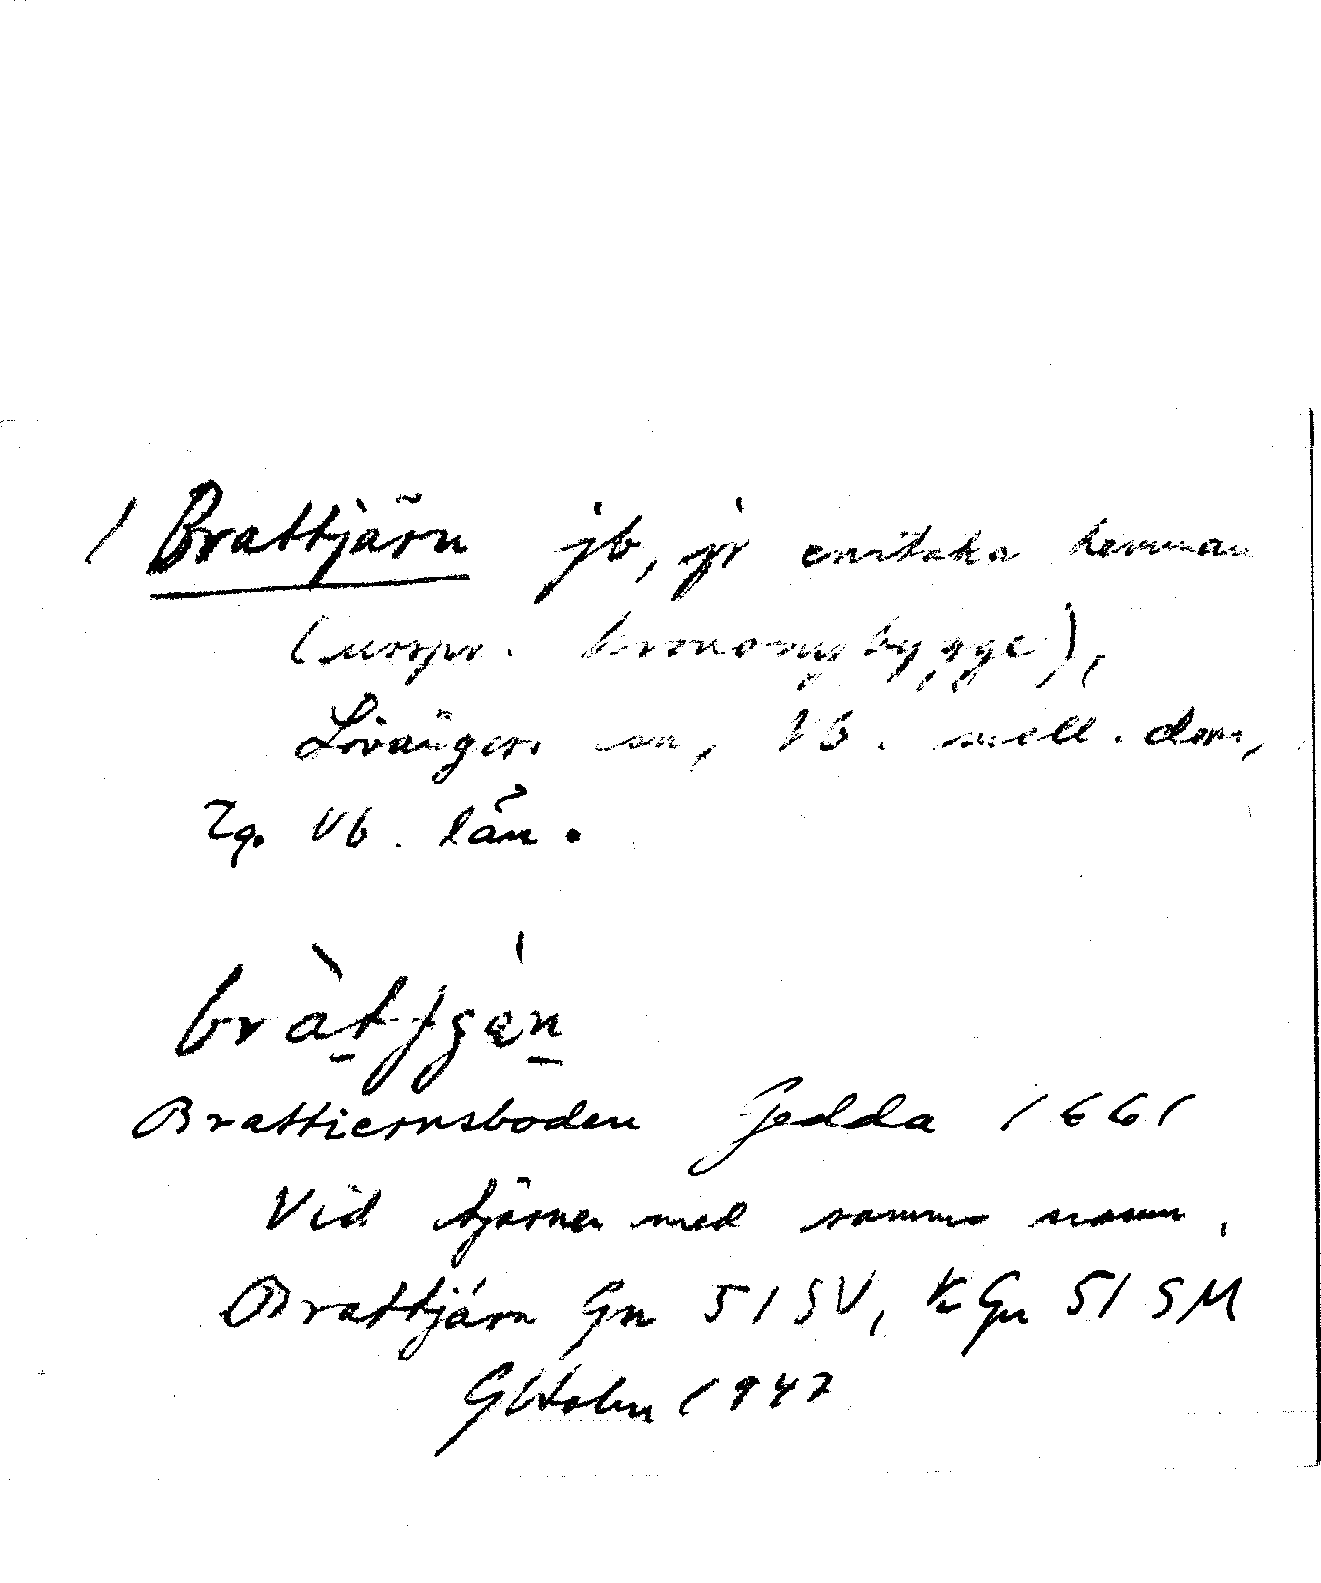 / Brattjärn jb, jr enstaka hemman
(urspr. kronanybygge),
Lövångers sn, Vb. mell. dom,
Zg. Vb. län.
bràtjgæ̀n
Brattiernsboden Gedda 1661
Vid tjärnen med samma namn.
Brattjärn Gn 51 SV, KGn 51 SM
GHolm 1947